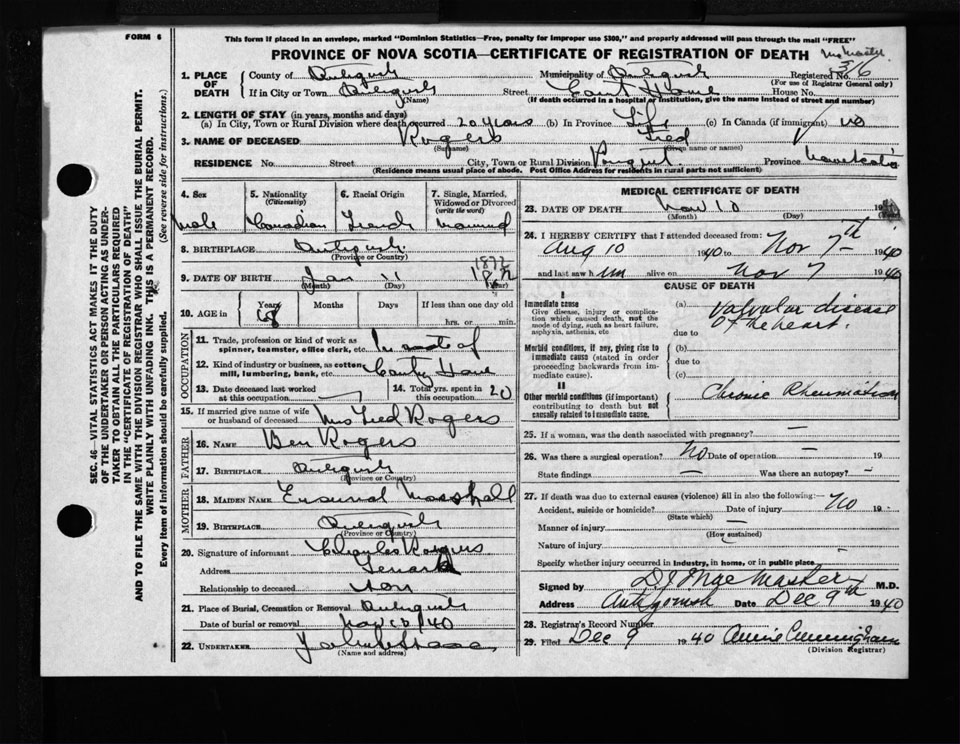 FORM 6
This form if placed in an envelope, marked "Dominion Statistics—Free, penalty for improper use $300," and properly addressed will pass through the mail "FREE"
PROVINCE OF NOVA SCOTIA—CERTIFICATE OF REGISTRATION OF DEATH
1. PLACE OF DEATH
County of Antigonish Municipality of Antigonish Registered No. 316
(For use of Registrar General only)
If in City or Town Antigonish Street House No.
(Name) (If death occurred in a hospital or institution, give the name instead of street and number)
2. LENGTH OF STAY (in years, months and days)
(a) In City, Town or Rural Division where death occurred 20 years (b) In Province Life (c) In Canada (if immigrant) no
3. NAME OF DECEASED Rogers Fred
(Surname) (Given name or names)
RESIDENCE No. Street City, Town or Rural Division Pomquet Province Nova Scotia
(Residence means usual place of abode. Post Office Address for residents in rural parts not sufficient)
SEC. 46—VITAL STATISTICS ACT MAKES IT THE DUTY
OF THE UNDERTAKER OR PERSON ACTING AS UNDER-
TAKER TO OBTAIN ALL THE PARTICULARS REQUIRED
IN THE "CERTIFICATE OF REGISTRATION OF DEATH"
AND TO FILE THE SAME WITH THE DIVISION REGISTRAR WHO SHALL ISSUE THE BURIAL PERMIT.
WRITE PLAINLY WITH UNFADING INK. THIS IS A PERMANENT RECORD.
Every item of information should be carefully supplied. (See reverse side for instructions.)
4. Sex
Male
5. Nationality
(Citizenship)
Canadian
6. Racial Origin
French
7. Single, Married, Widowed or Divorced
(write the word)
Married
8. BIRTHPLACE Antigonish
(Province or County)
9. DATE OF BIRTH Jan 11 1872
(Month) (Day) (Year)
10. AGE in Years Months Days If less than one day old
68 hrs. or min.
OCCUPATION
11. Trade, profession or kind of work as
spinner, teamster, office clerk, etc. Inmate of
12. Kind of industry or business, as cotton
mill, lumbering, bank, etc. County Home
13. Date deceased last worked
at this occupation
14. Total yrs. spent in
this occupation 20
15. If married give name of wife
or husband of deceased Mrs Fred Rogers
FATHER
16. NAME Ben Rogers
17. BIRTHPLACE Antigonish
(Province or Country)
MOTHER
18. MAIDEN NAME
19. BIRTHPLACE Antigonish
(Province or Country)
20. Signature of informant Charles Rogers
Address
Relationship to deceased son
21. Place of Burial, Cremation or Removal Antigonish
Date of burial or removal Nov 12/40
22. UNDERTAKER
(Name and address)
MEDICAL CERTIFICATE OF DEATH
23. DATE OF DEATH Nov 10 19
(Month) (Day) (Year)
24. I HEREBY CERTIFY that I attended deceased from:
Aug 10 1940 to Nov 7th 1940
and last saw him alive on Nov 7 1940
CAUSE OF DEATH
I
Immediate cause
Give disease, injury or complica-
tion which caused death, not the
mode of dying, such as heart failure,
asphyxia, asthenia, etc
(a) Valvular disease
of the heart.
due to
Morbid conditions, if any, giving rise to
immediate cause (stated in order
proceeding backwards from im-
mediate cause).
(b)
due to
(c)
II
Other morbid conditions (if important)
contributing to death but not
causally related to immediate cause.
Chronic Rheumatism
25. If a woman, was the death associated with pregnancy? —
26. Was there a surgical operation? No Date of operation — 19
State findings — Was there an autopsy? —
27. If death was due to external causes (violence) fill in also the following:—
Accident, suicide or homicide? Date of injury No 19
(State which)
Manner of injury —
(How sustained)
Nature of injury —
Specify whether injury occurred in industry, in home, or in public place
Signed by D J MacMaster M.D.
Address Antigonish Date Dec 9th 1940
28. Registrar's Record Number
29. Filed Dec 9 1940 Annie Cunningham
(Division Registrar)